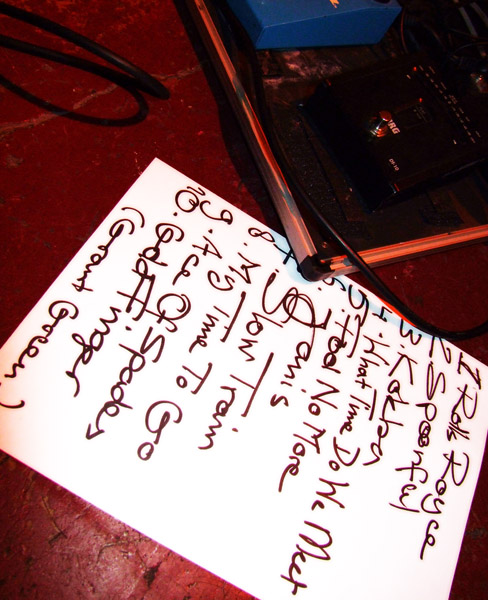 1 Rolls Royce
2 Spoonful
3
4 What Time Do We Meet
5. Fool No More
6 Janis
Slow Train
8. My Time To Go
9. Ace Of Spades
10. GoldFinger
(Grant Green)